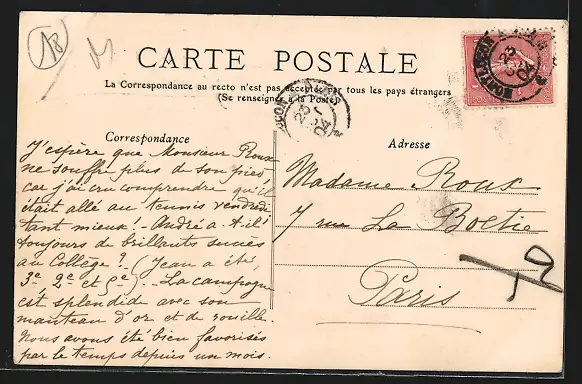 18
CARTE POSTALE
La Correspondance au recto n'est pas acceptée par tous les pays étrangers
(Se renseigner à la Poste)
Correspondance
Adresse
J'espère que Monsieur Roux
ne souffre plus de son pied
car j'ai cru comprendre qu'il
était allé au tennis vendredi
tant mieux! - André a-t-il
toujours de brillants succès
au Collège? (Jean a été,
3e, 2e et ). - La campagne
est splendide avec son
manteau d'or et de rouille.
Nous avons été bien favorisés
par le temps depuis un mois.
Madame Roux
7 rue La Boétie
Paris